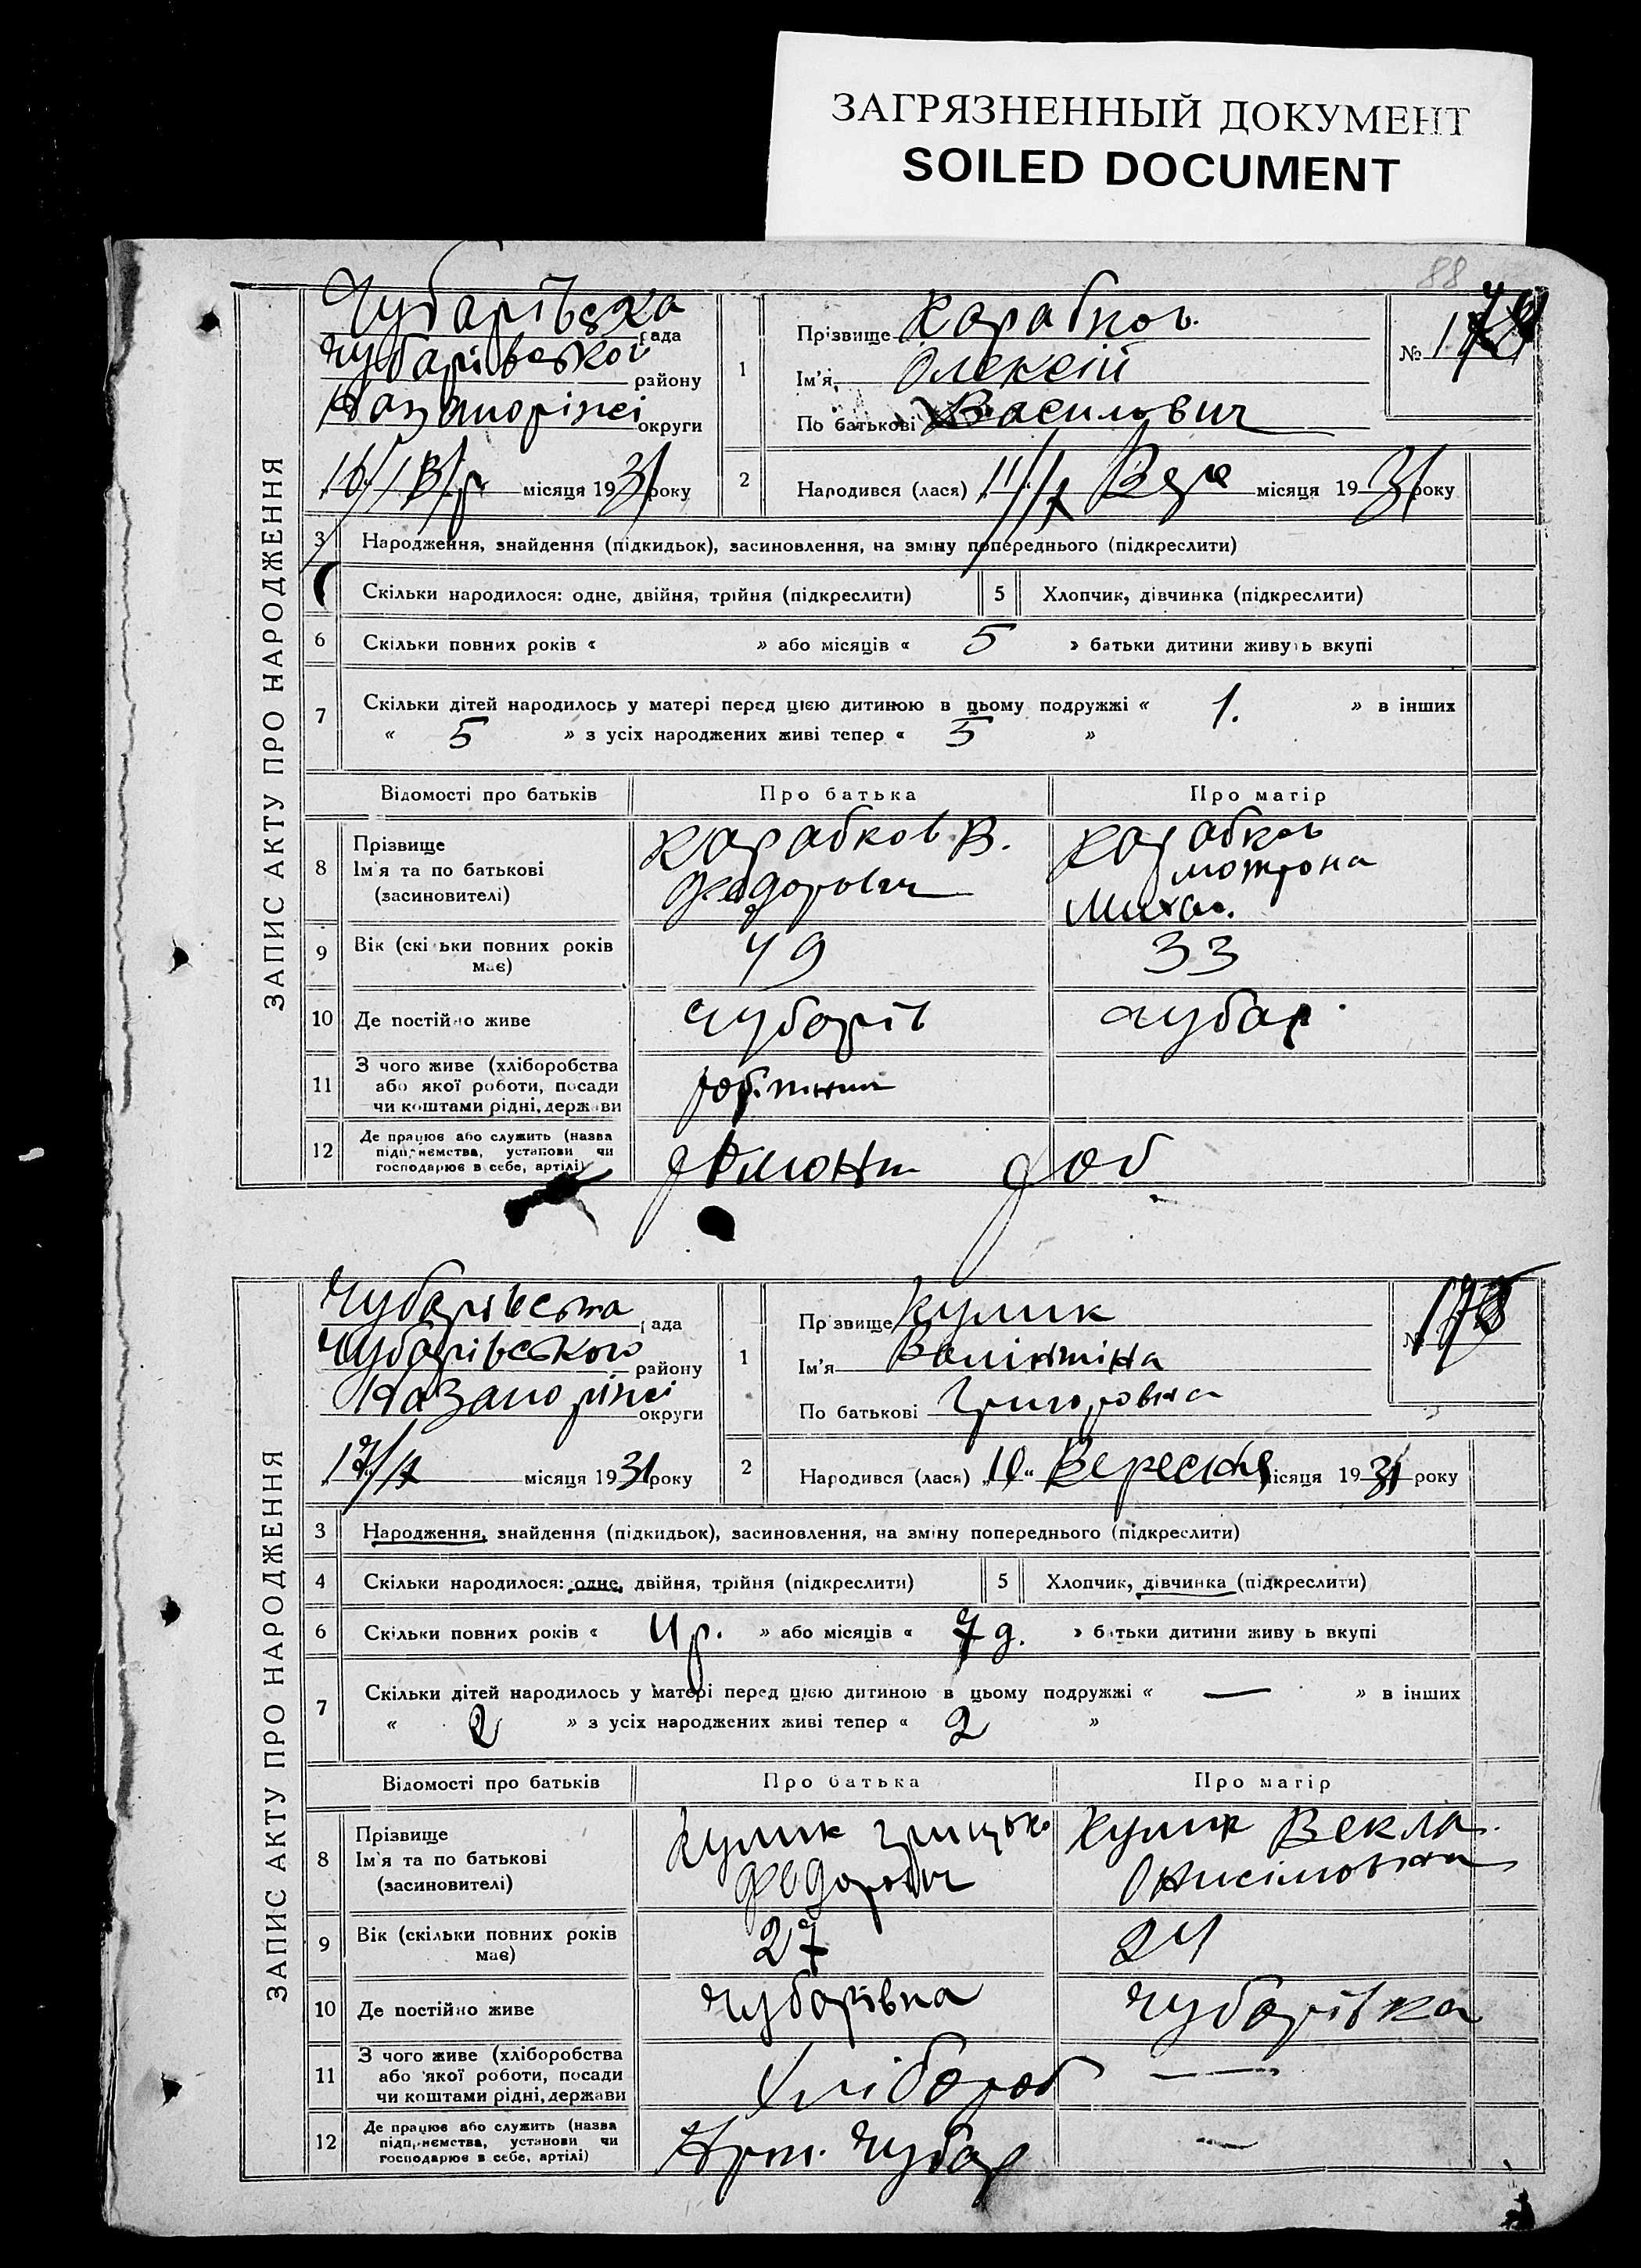 ЗАГРЯЗНЕННЫЙ ДОКУМЕНТ
SOILED DOCUMENT
88
ЗАПИС АКТУ ПРО НАРОДЖЕННЯ
Чубарівська рада
Чубарівського району
округи
16/ місяця 1931 року
1
Прізвище Карабков
Ім'я Олексій
По батькові Василович
№
2
Народився (лася) 11/ Вер місяця 1931 року
3 Народження, знайдення (підкидьок), засиновлення, на зміну попереднього (підкреслити)
Скільки народилося: одне, двійня, трійня (підкреслити) 5 Хлопчик, дівчинка (підкреслити)
6 Скільки повних років « » або місяців « 5 » батьки дитини живуть вкупі
7 Скільки дітей народилось у матері перед цією дитиною в цьому подружжі « 1. » в інших
« 5 » з усіх народжених живі тепер « 5 »
Відомості про батьків Про батька Про матір
8 Прізвище
Ім'я та по батькові
(засиновителі)
Карабков В.
Федорович
Карабков
мотрона
Михай.
9 Вік (скільки повних років має) 49 33
10 Де постійно живе Чубарів Чубар
11 З чого живе (хліборобства
або якої роботи, посади
чи коштами рідні, держави
робітник
12 Де працює або служить (назва
підприємства, установи чи
господарює в себе, артілі)
ЗАПИС АКТУ ПРО НАРОДЖЕННЯ
Чубарівська рада
Чубарівського району
округи
17/ місяця 1931 року
1
Прізвище Кулик
Ім'я Валінтіна
По батькові Григоровна
№ 178
2
Народився (лася) „10“ Вересня місяця 1931 року
3 Народження, знайдення (підкидьок), засиновлення, на зміну попереднього (підкреслити)
4 Скільки народилося: одне, двійня, трійня (підкреслити) 5 Хлопчик, дівчинка (підкреслити)
6 Скільки повних років « 4 р. » або місяців « 7 » батьки дитини живуть вкупі
7 Скільки дітей народилось у матері перед цією дитиною в цьому подружжі « — » в інших
« 2 » з усіх народжених живі тепер « 2 »
Відомості про батьків Про батька Про матір
8 Прізвище
Ім'я та по батькові
(засиновителі)
Кулик Грицько
Федорович
Кулик Векла
Онисімовна
9 Вік (скільки повних років має) 27 24
10 Де постійно живе Чубарівка Чубарівка
11 З чого живе (хліборобства
або якої роботи, посади
чи коштами рідні, держави
Хлібороб —
12 Де працює або служить (назва
підприємства, установи чи
господарює в себе, артілі)
Арт. Чубар —